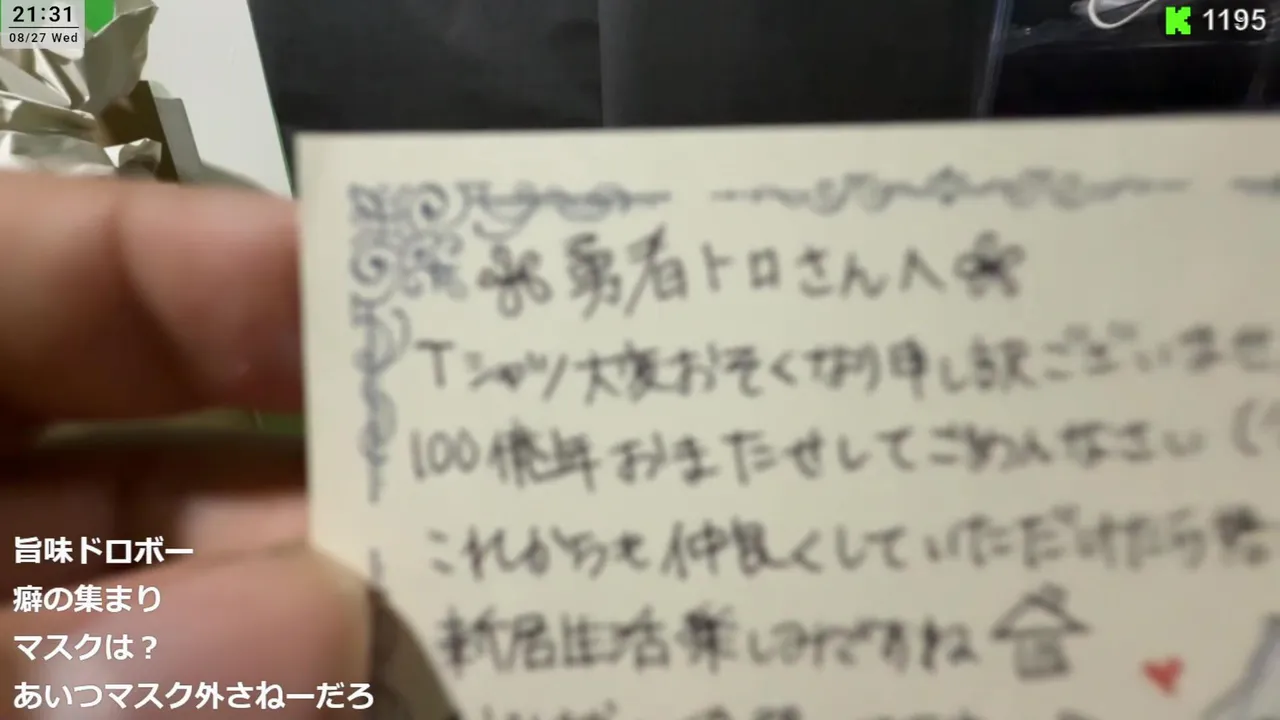 21:31
08/27 Wed
1195
勇者トロさんへ
Tシャツ大変おそくなり申し訳ございませ
100億年おまたせしてごめんなさい (
これからも仲良くしていただけたら
新居生活楽しみですね
旨味ドロボー
癖の集まり
マスクは？
あいつマスク外さねーだろ